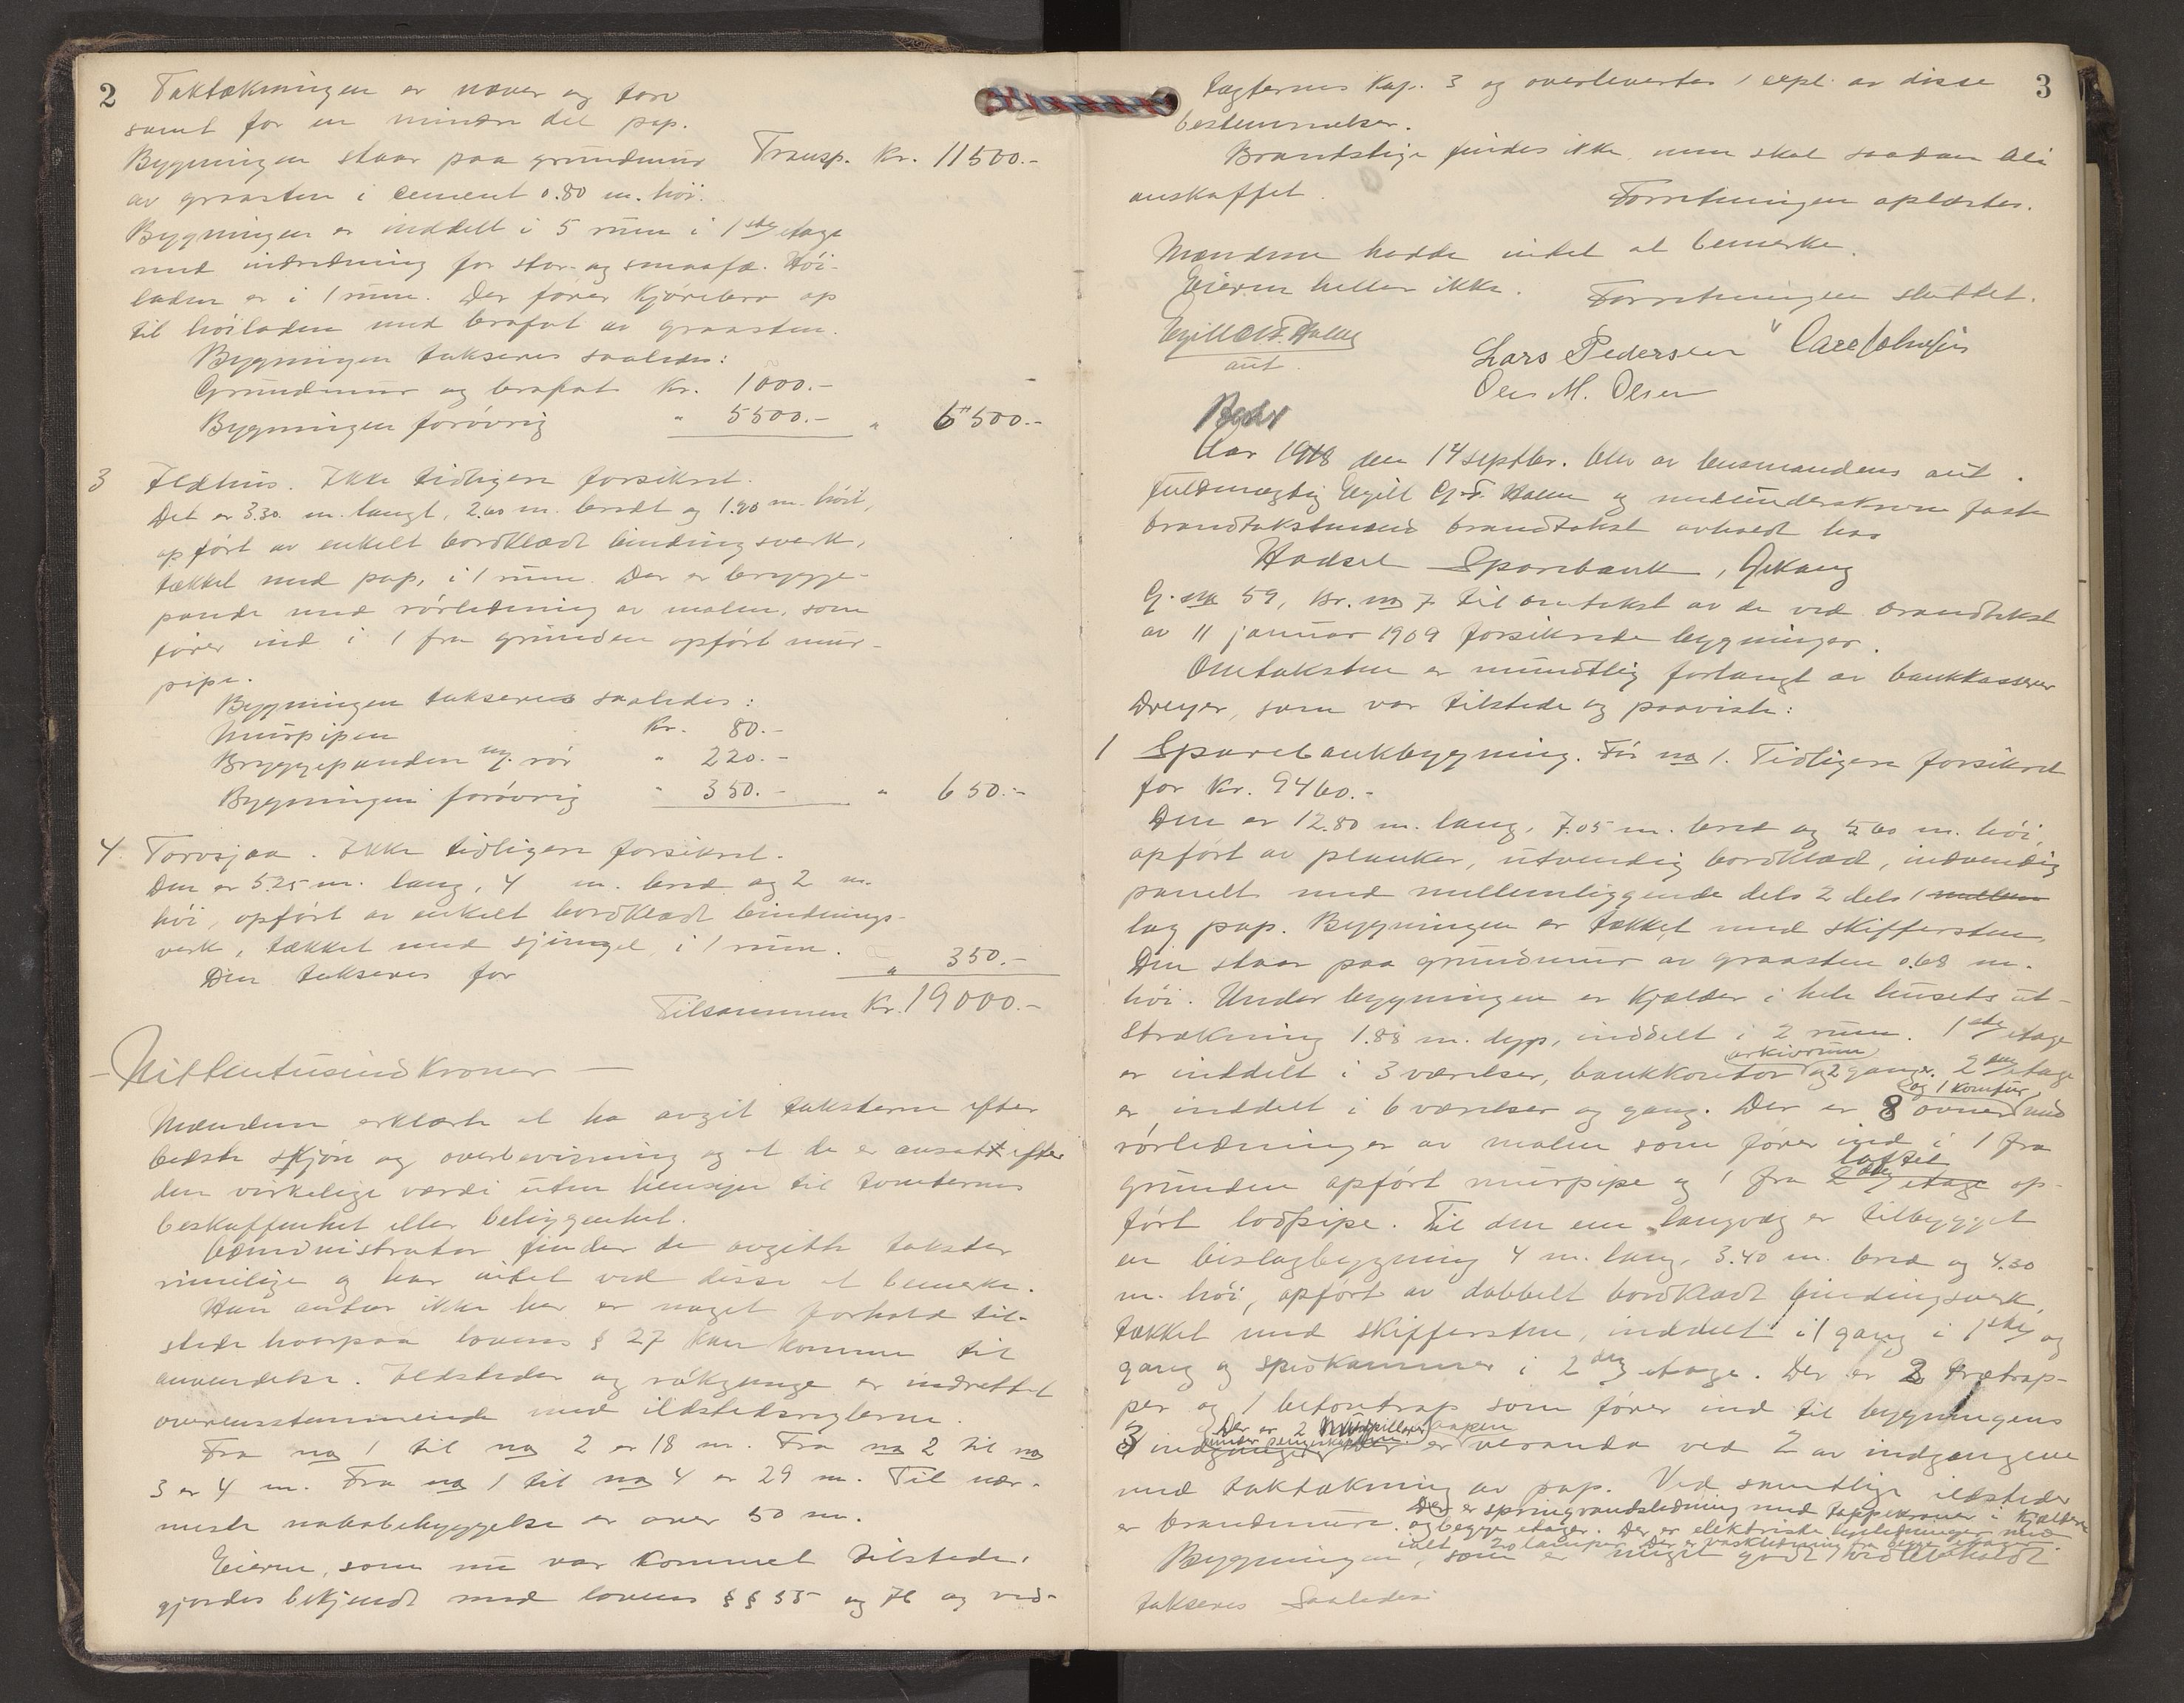 2
Taktækningen er næver og torv
samt for en mindre del pap.
Bygningen staar paa grundmur Transp. Kr. 11500.-
av graasten i cement 0.80 m. høi.
Bygningen er inddelt i 5 rum i 1ste etage
med indredning for stor- og smaafæ. Høi-
laden er i 1 rum. Der fører kjørebro op
til høiladen med brofot av graasten.
Bygningen takseres saaledes:
Grundmur og brofot Kr. 1000.-
Bygningen forøvrig " 5500.- " 6500.-
3 Ildhus. Ikke tidligere forsikret.
Det er 3.30 m. langt, 2.60 m. bredt og 1.90 m. høit,
opført av enkelt bordklædt bindingsverk,
tækket med pap, i 1 rum. Der er brygge-
pande med rørledning av malm, som
fører ind i 1 fra grunden opført mur-
pipe.
Bygningen takseres saaledes:
Murpipen Kr. 80.-
Bryggepanden m. rør " 220.-
Bygningen forøvrig " 350.- " 650.-
4. Torvsjaa. Ikke tidligere forsikret.
Den er 5.25 m. lang, 4 m. bred og 2 m.
høi, opført av enkelt bordklædt bindings-
verk, tækket med sjingel, i 1 rum.
Den takseres for " 350.-
Tilsammen Kr. 19000.-
- Nittentusindkroner -
Mændene erklærte at ha avgit taksterne efter
bedste skjøn og overbevisning og at de er ansatt efter
den virkelige værdi uten hensyn til tomternes
beskaffenhet eller beliggenhet.
Administrator finder de avgitte takster
rimelige og har intet ved disse at bemerke.
Han antar ikke her er noget forhold til-
stede hvorpaa lovens § 27 kan komme til
anvendelse. Ildsteder og røkgange er indrettet
overensstemmende med ildstedsreglerne.
Fra no 1 til no 2 er 18 m. Fra no 2 til no
3 er 4 m. Fra no 1 til no 4 er 29 m. Til nær-
meste nabobebyggelse er over 50 m.
Eieren, som nu var kommet tilstede,
gjordes bekjendt med lovens §§ 35 og 76 og ved-
3
tægternes Kap. 3 og overlevertes 1 expl. av disse
bestemmelser.
Brandstige findes ikke, men skal saadan bli
anskaffet. Forretningen oplæstes.
Mændene hadde intet at bemerke.
Eieren heller ikke. Forretningen sluttet.
Lars Pedersen
aut.
Ole M. Olsen
Aar 1918 den 14 septbr. blev av lensmandens aut.
fuldmægtig Egill G.F. Halle og medunderskrevne faste
brandtakstmænd brandtakst avholdt hos
Hadsel Sparebank,
G. no 59, Br. no 7 til omtakst av de ved brandtakst
av 11 januar 1909 forsikrede bygninger.
Omtaksten er mundtlig forlangt av bankkasserer
Dreyer, som var tilstede og paaviste:
1 Sparebankbygning. Før no 1. Tidligere forsikret
for Kr. 9460.-
Den er 12.80 m. lang, 7.05 m. bred og 5.60 m. høi,
opført av planker, utvendig bordklæd, indvendig
panelt med mellemliggende dels 2 dels 1 mellem
lag pap. Bygningen er tækket med skiffersten.
Den staar paa grundmur av graasten 0.68 m.
høi. Under bygningen er kjælder i hele husets ut-
strækning 1.88 m. dyp, inddelt i 2 rum. 1ste etage
arkivrum
er inddelt i 3 værelser, bankkontor og 2 gange. 2den etage
og 1 komfur
er inddelt i 6 værelser og gang. Der er 8 ovner med
rørledninger av malm som fører ind i 1 fra
loftet
grunden opført murpipe og 1 fra 2den etage op-
ført lodpipe. Til den ene langvæg er tilbygget
en bislagbygning 4 m. lang, 3.40 m. bred og 4.30
m. høi, opført av dobbelt bordklædt bindingsverk,
tækket med skiffersten, inddelt i 1 gang i 1ste og
gang og spiskammer i 2den etage. Der er 2 trætrap-
per og 1 betontrap som fører ind til bygningens
Der er 2 murpillarer aapen
3 indganger er veranda ved 2 av indgangene
med taktækning av pap. Ved samtlige ildsteder
Der er springvandsledning med tappekraner i kjælder
er brandmure. og begge etager. Der er elektriske lysledninger med
ialt 20 lamper. Der er vaskledning fra begge etager.
Bygningen, som er meget godt vedlikeholdt
takseres saaledes: